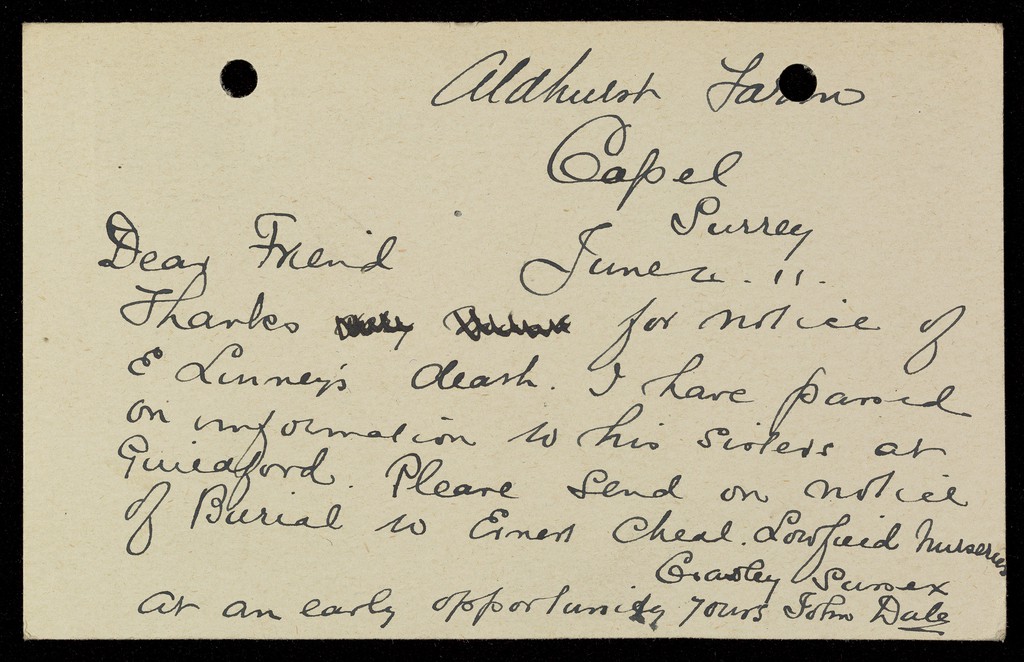 Aldhurst Farm
Capel
Surrey
Dear Friend June 11.
Thanks for notice of
E Linney's death. I have passed
on information to his sisters at
Guildford. Please send on notice
of Burial to Ernest Cheal. Lowfield Nurseries
Crawley Sussex
at an early opportunity yours John Dale